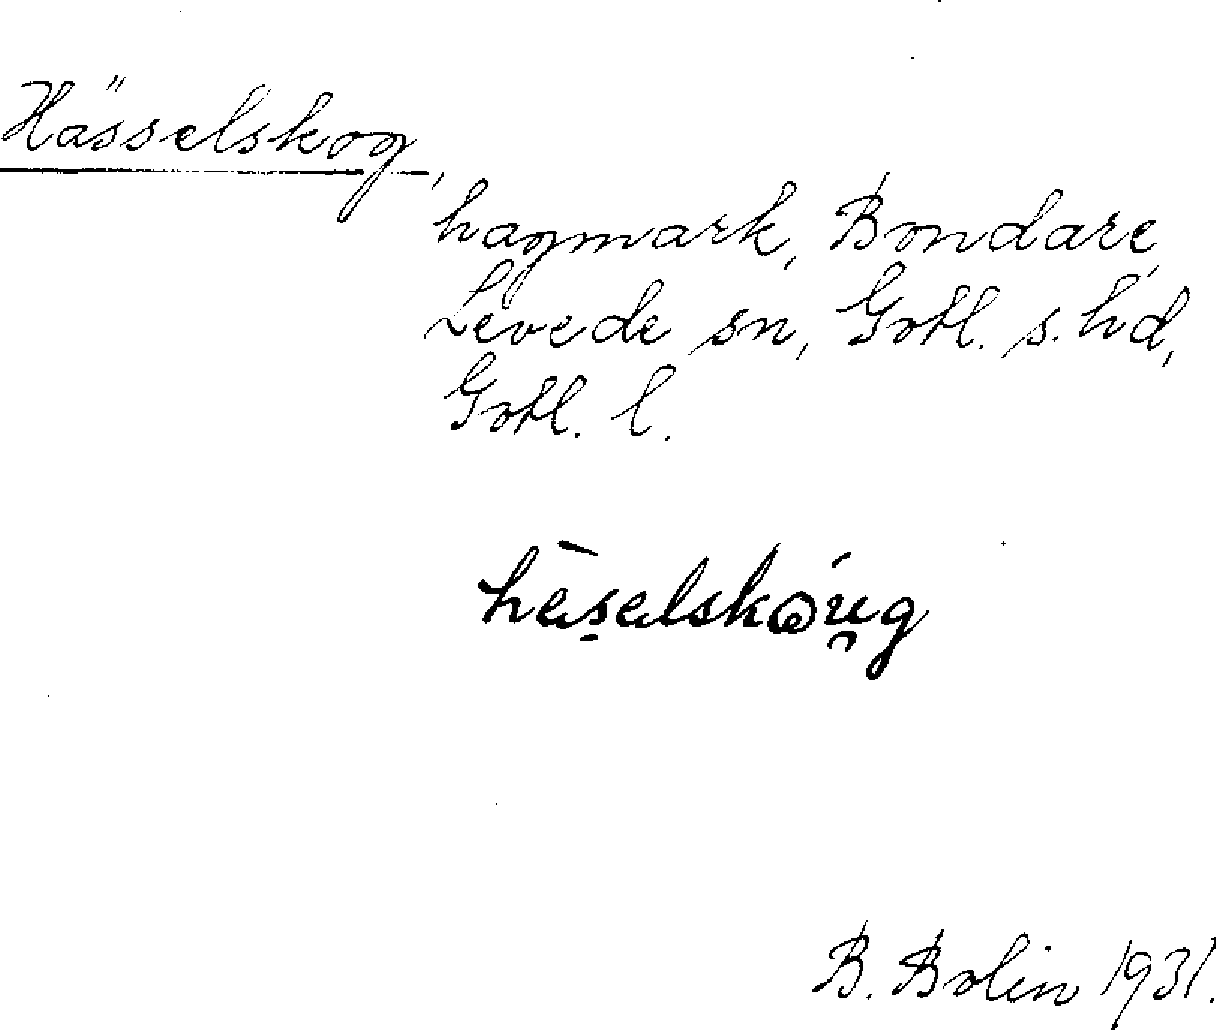 Hässelskog,
hagmark, Bondarve,
Levede sn, Gotl. s. hd,
Gotl. l.
B. Bolin 1931.